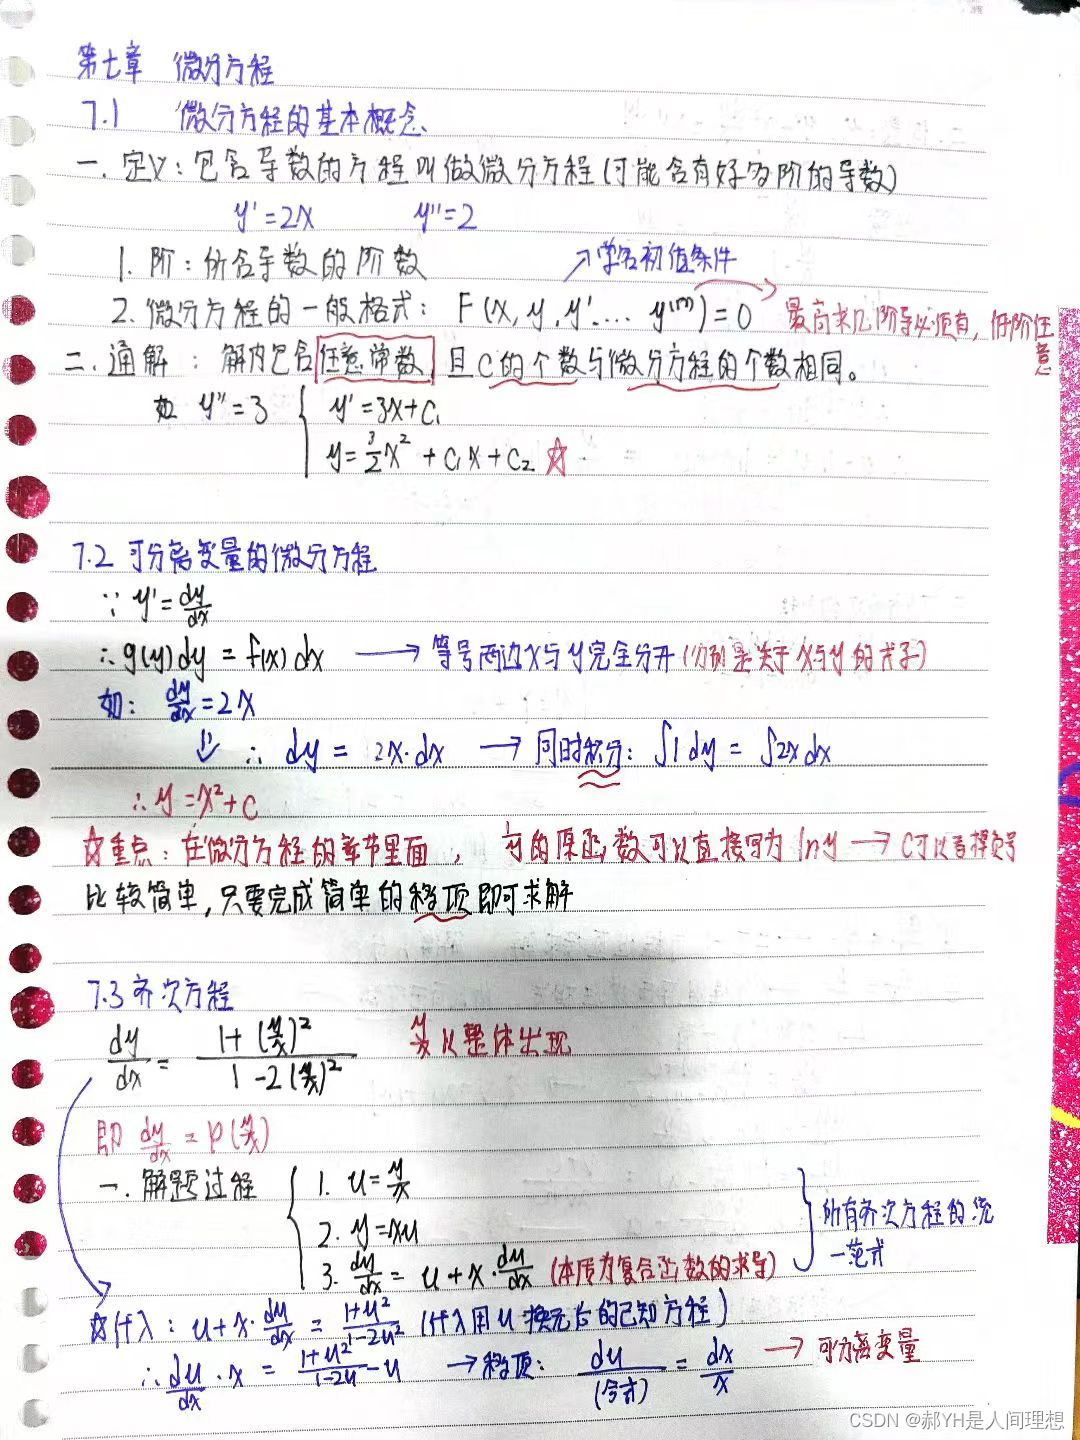 第七章 微分方程
7.1 微分方程的基本概念
一.定义:包含导数的方程叫做微分方程(可能含有好多阶的导数)
y'=2x y''=2
1.阶:所含导数的阶数 ↗常备初值条件
2.微分方程的一般格式: F(x,y,y'.... y⁽ⁿ⁾)=0 最高求几阶导必须有,低阶任意
二.通解:解内包含任意常数且C的个数与微分方程的个数相同。
如 y''=3 { y'=3x+C₁
y=3/2x²+C₁x+C₂ ☆
7.2 可分离变量的微分方程
∵ y'=dy/dx
∴g(y)dy=f(x)dx ⟶ 等号两边x与y完全分开(分别是关于x与y的式子)
如: dy/dx=2x
⇓ ∴ dy = 2x·dx → 同时积分: ∫1dy = ∫2xdx
∴y=x²+C
☆重点:在微分方程的章节里面, 1/y的原函数可以直接写为lny → C可以看掉负号
比较简单,只要完成简单的移项即可求解
7.3 齐次方程
dy/dx = 1+(y/x)²/1-2(y/x)² y/x以整体出现
即 dy/dx=φ(y/x)
一.解题过程 { 1. u=y/x
2. y=xu
3. dy/dx=u+x·du/dx (本质为复合函数的求导) } 所有齐次方程的统一范式
☆代入: u+x·du/dx=1+u²/1-2u² (代入用u换元后的已知方程)
∴du/dx·x = 1+u²/1-2u-u →移项: du/(合式)=dx/x → 可分离变量
CSDN @郝YH是人间理想